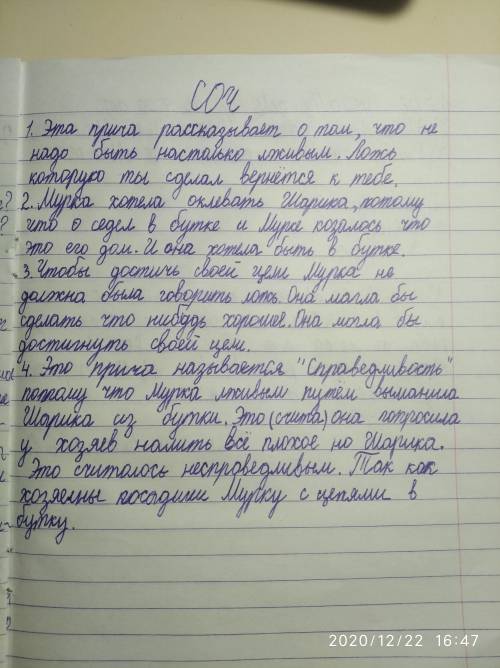 СОЧ
1. Эта прича рассказывает о том, что не
надо быть настолько лживым. Ложь
которую ты сделал вернётся к тебе.
2. Мурка хотела оклевать Шарика, потому
что о седел в бутке и Мурке козалось что
это его дом. И она хотела быть в бутке.
3. Чтобы достичь своей цели Мурка не
должна была говорить ложь. Она могла бы
сделать что нибудь хорошее. Она могла бы
достигнуть своей цели.
4. Это прича называется "Справедливость"
потому что Мурка лживым путём выманила
Шарика из бутки. Это (счита) она попросила
у хозяев налить всё плохое но Шарика.
Это считалось несправедливым. Так как
хозяены посадили Мурку с цепями в
бутку.
2020/12/22 16:47